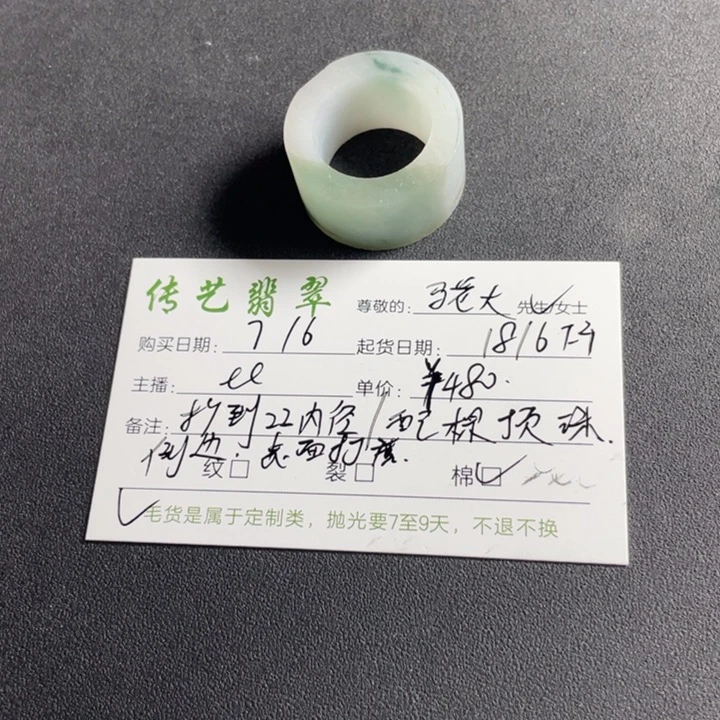 传艺翡翠 尊敬的: 大 先生/女士
购买日期: 7/6 起货日期: 18/6
主播: ll 单价: ¥480.
备注: 到22内径/配1棵顶珠.
倒边. 表面打
纹□ 裂□ 棉□
毛货是属于定制类，抛光要7至9天，不退不换